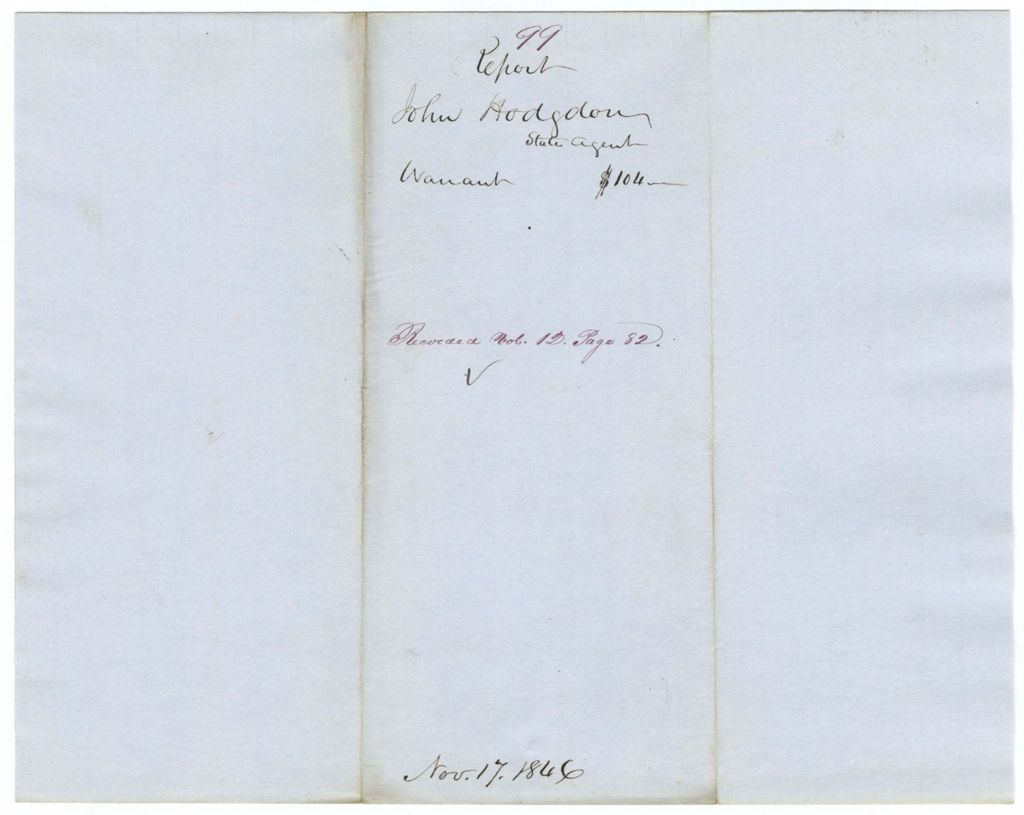 99
Report
John Hodgdon
State Agent
Warrant $104—
Recorded Vol. 12. Page 82.
Nov. 17. 1846